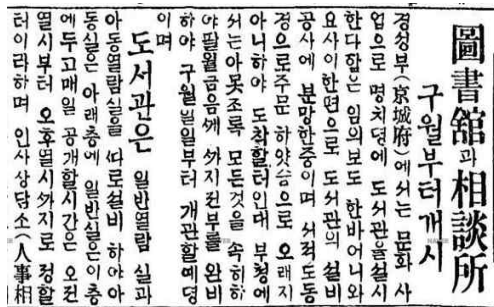 圖書舘과相談所
구월부터개시
경성부(京城府)에서는 문화 사
업으로 명치뎡에 도서관을설시
한다함은 임의보도 한바어니와
요사이한면으로 도서관의 설비
공사에 분망한중이며 서적도동
경으로주문 하얏슴으로 오래지
아니하야 도착할터인대 부청에
서는아못조록 모든것을 속히하
야팔월금음께 ᄭᅡ지전부를 완비
하야 구월일일부터 개관할예뎡
이며
도서관은 일반열람 실과
아동열람실을 ᄯᅡ로설비 하야아
동실은 아래층에 일반실은이층
에두고매일 공개할시간은 오전
열시부터 오후열시ᄭᅡ지로 정할
터이라하며 인사상담소(人事相